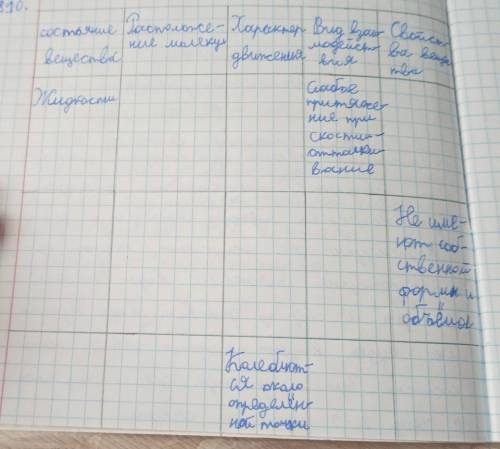 310.
состояние
вещества
Расположе-
ние молекул
Характер
движения
Вид взаи-
модейст-
вия
Свойст-
ва веще-
тва
Жидкости
Слабое
притяже-
ние при
отталки-
вание
Не име-
ют соб-
ственной
формы и
объёма
Колеблют-
ся около
определён-
ной точки